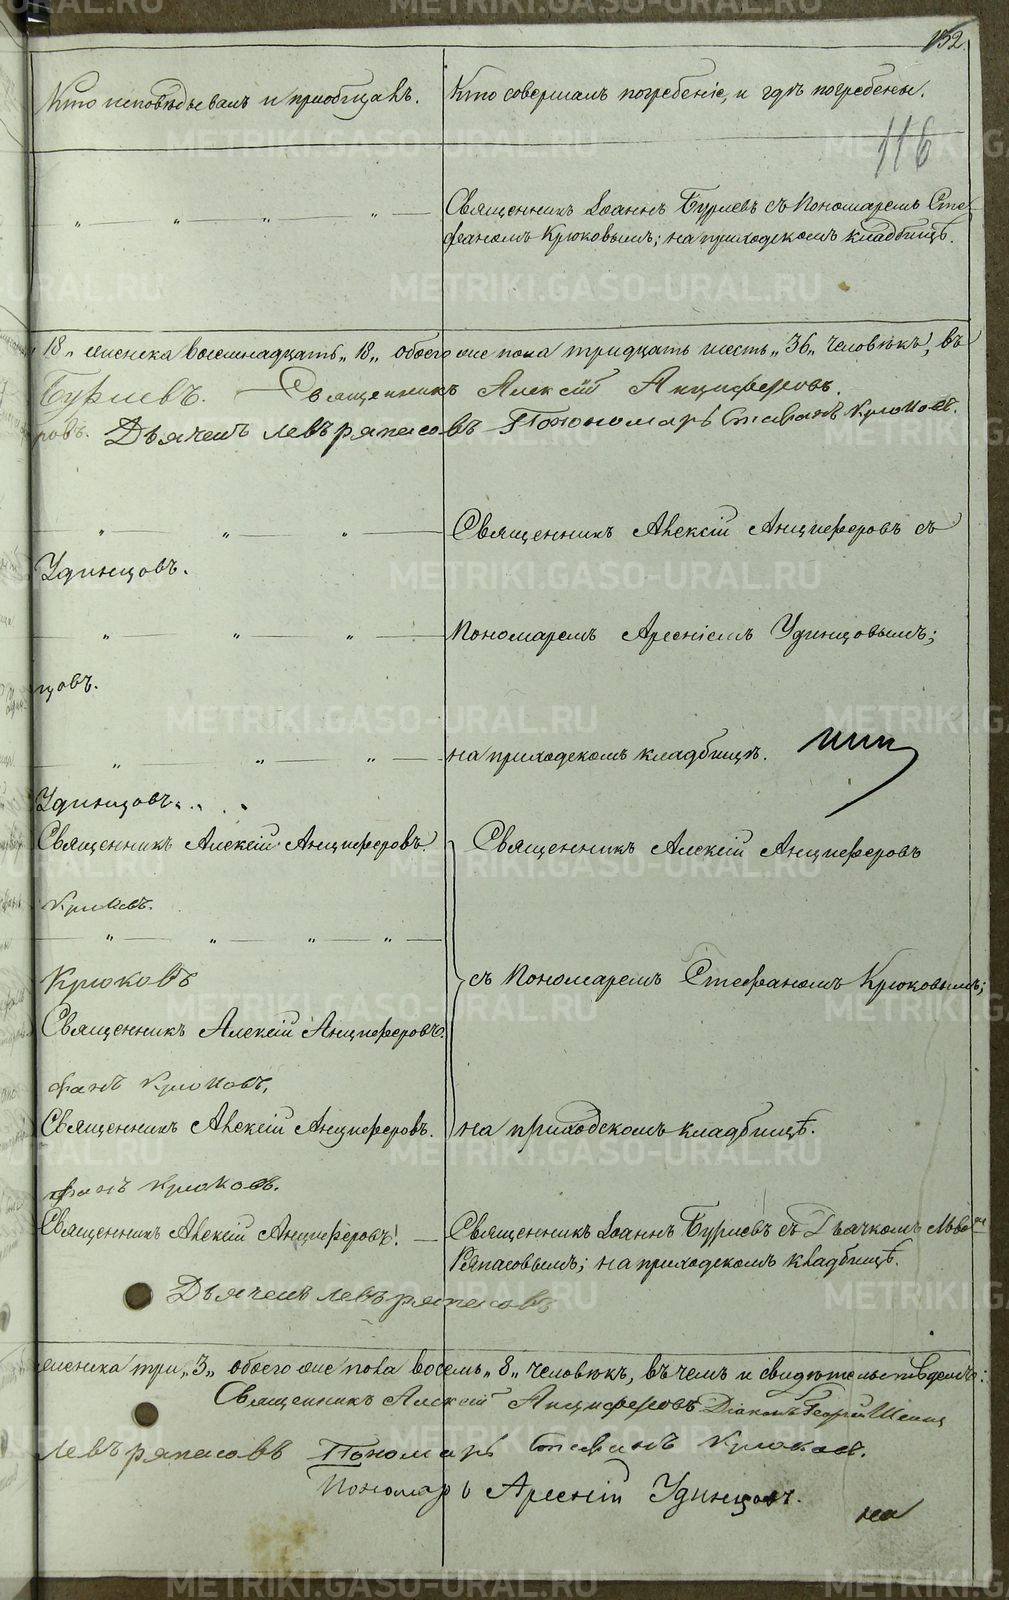 152.
Кто исповѣдывалъ и пріобщалъ.
Кто совершалъ погребеніе, и гдѣ погребены.
116
Священникъ Іоаннъ Бурлевъ съ Пономаремъ Сте-
фаномъ Крюковымъ; на приходскомъ кладбищѣ.
18„ женска восемнадцать„ 18„ обоего же пола тридцать шесть„ 36„ человѣкъ, въ
Бурлевъ. Священникъ Алексій Анциферовъ.
ровъ. Дьячекъ Левъ Ряпасовъ Пономарь Стефанъ Крюковъ.
Священникъ Алексій Анциферовъ съ
Удинцовъ.
Пономаремъ Арсеніемъ Удинцовымъ;
цовъ.
на приходскомъ кладбищѣ.
Удинцовъ.
Священникъ Алексій Анциферовъ.
Священникъ Алексій Анциферовъ
Крюковъ.
Крюковъ
съ Пономаремъ Стефаномъ Крюковымъ;
Священникъ Алексій Анциферовъ.
фанъ Крюковъ.
Священникъ Алексій Анциферовъ.
на приходскомъ кладбищѣ.
фанъ Крюковъ.
Священникъ Алексій Анциферовъ.
Священникъ Іоаннъ Бурлевъ съ Дьячкомъ Львомъ
Ряпасовымъ; на приходскомъ кладбищѣ.
Дьячекъ Левъ Ряпасовъ
женска три„ 3„ обоего же пола восемь„ 8„ человѣкъ, въ чемъ и свидѣтельствуемъ:
Священникъ Алексій Анциферовъ Діаконъ Георгій
Левъ Ряпасовъ Пономарь Стефанъ Крюковъ.
Пономарь Арсеній Удинцовъ.
METRIKI.GASO-URAL.RU